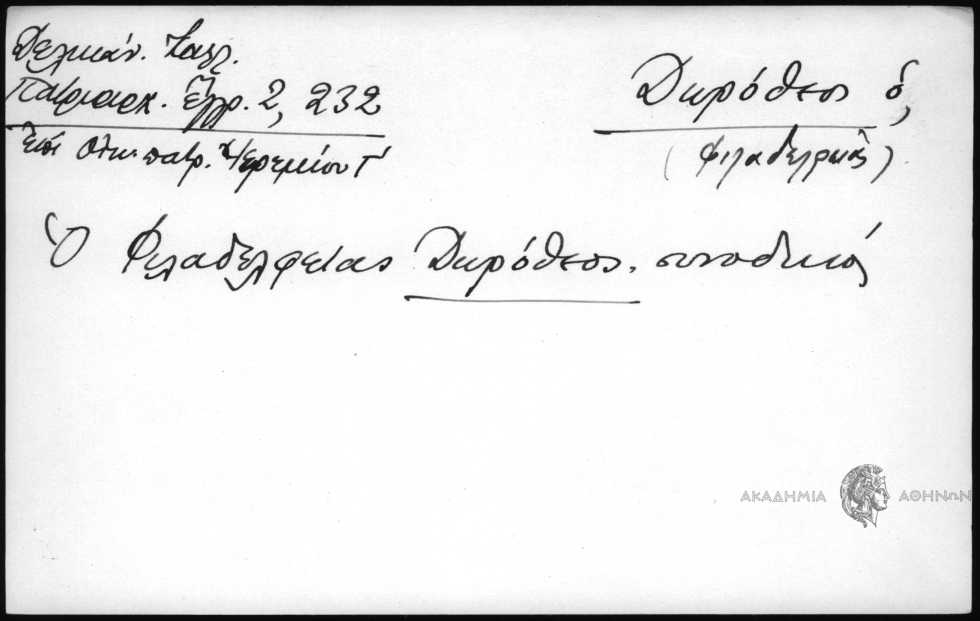 Δελικάν. Καλλ.
Πατριαρχ. Ἔγγρ. 2, 232
ἐπὶ Οἰκ. πατρ. Ἱερεμίου Γ´
Δωρόθεος ὁ,
(Φιλαδελφείας)
Ὁ Φιλαδελφείας Δωρόθεος. συνοδικός
ΑΚΑΔΗΜΙΑ ΑΘΗΝΩΝ